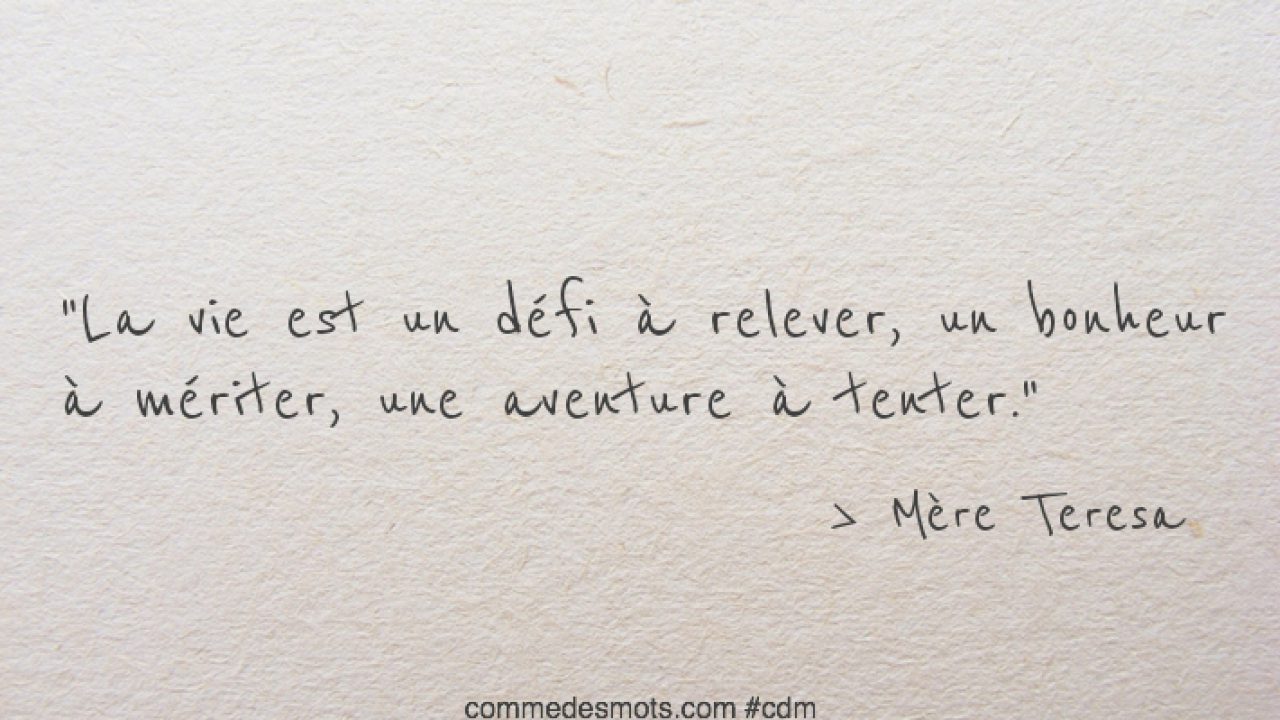 "La vie est un défi à relever, un bonheur
à mériter, une aventure à tenter."
> Mère Teresa
commedesmots.com #cdm